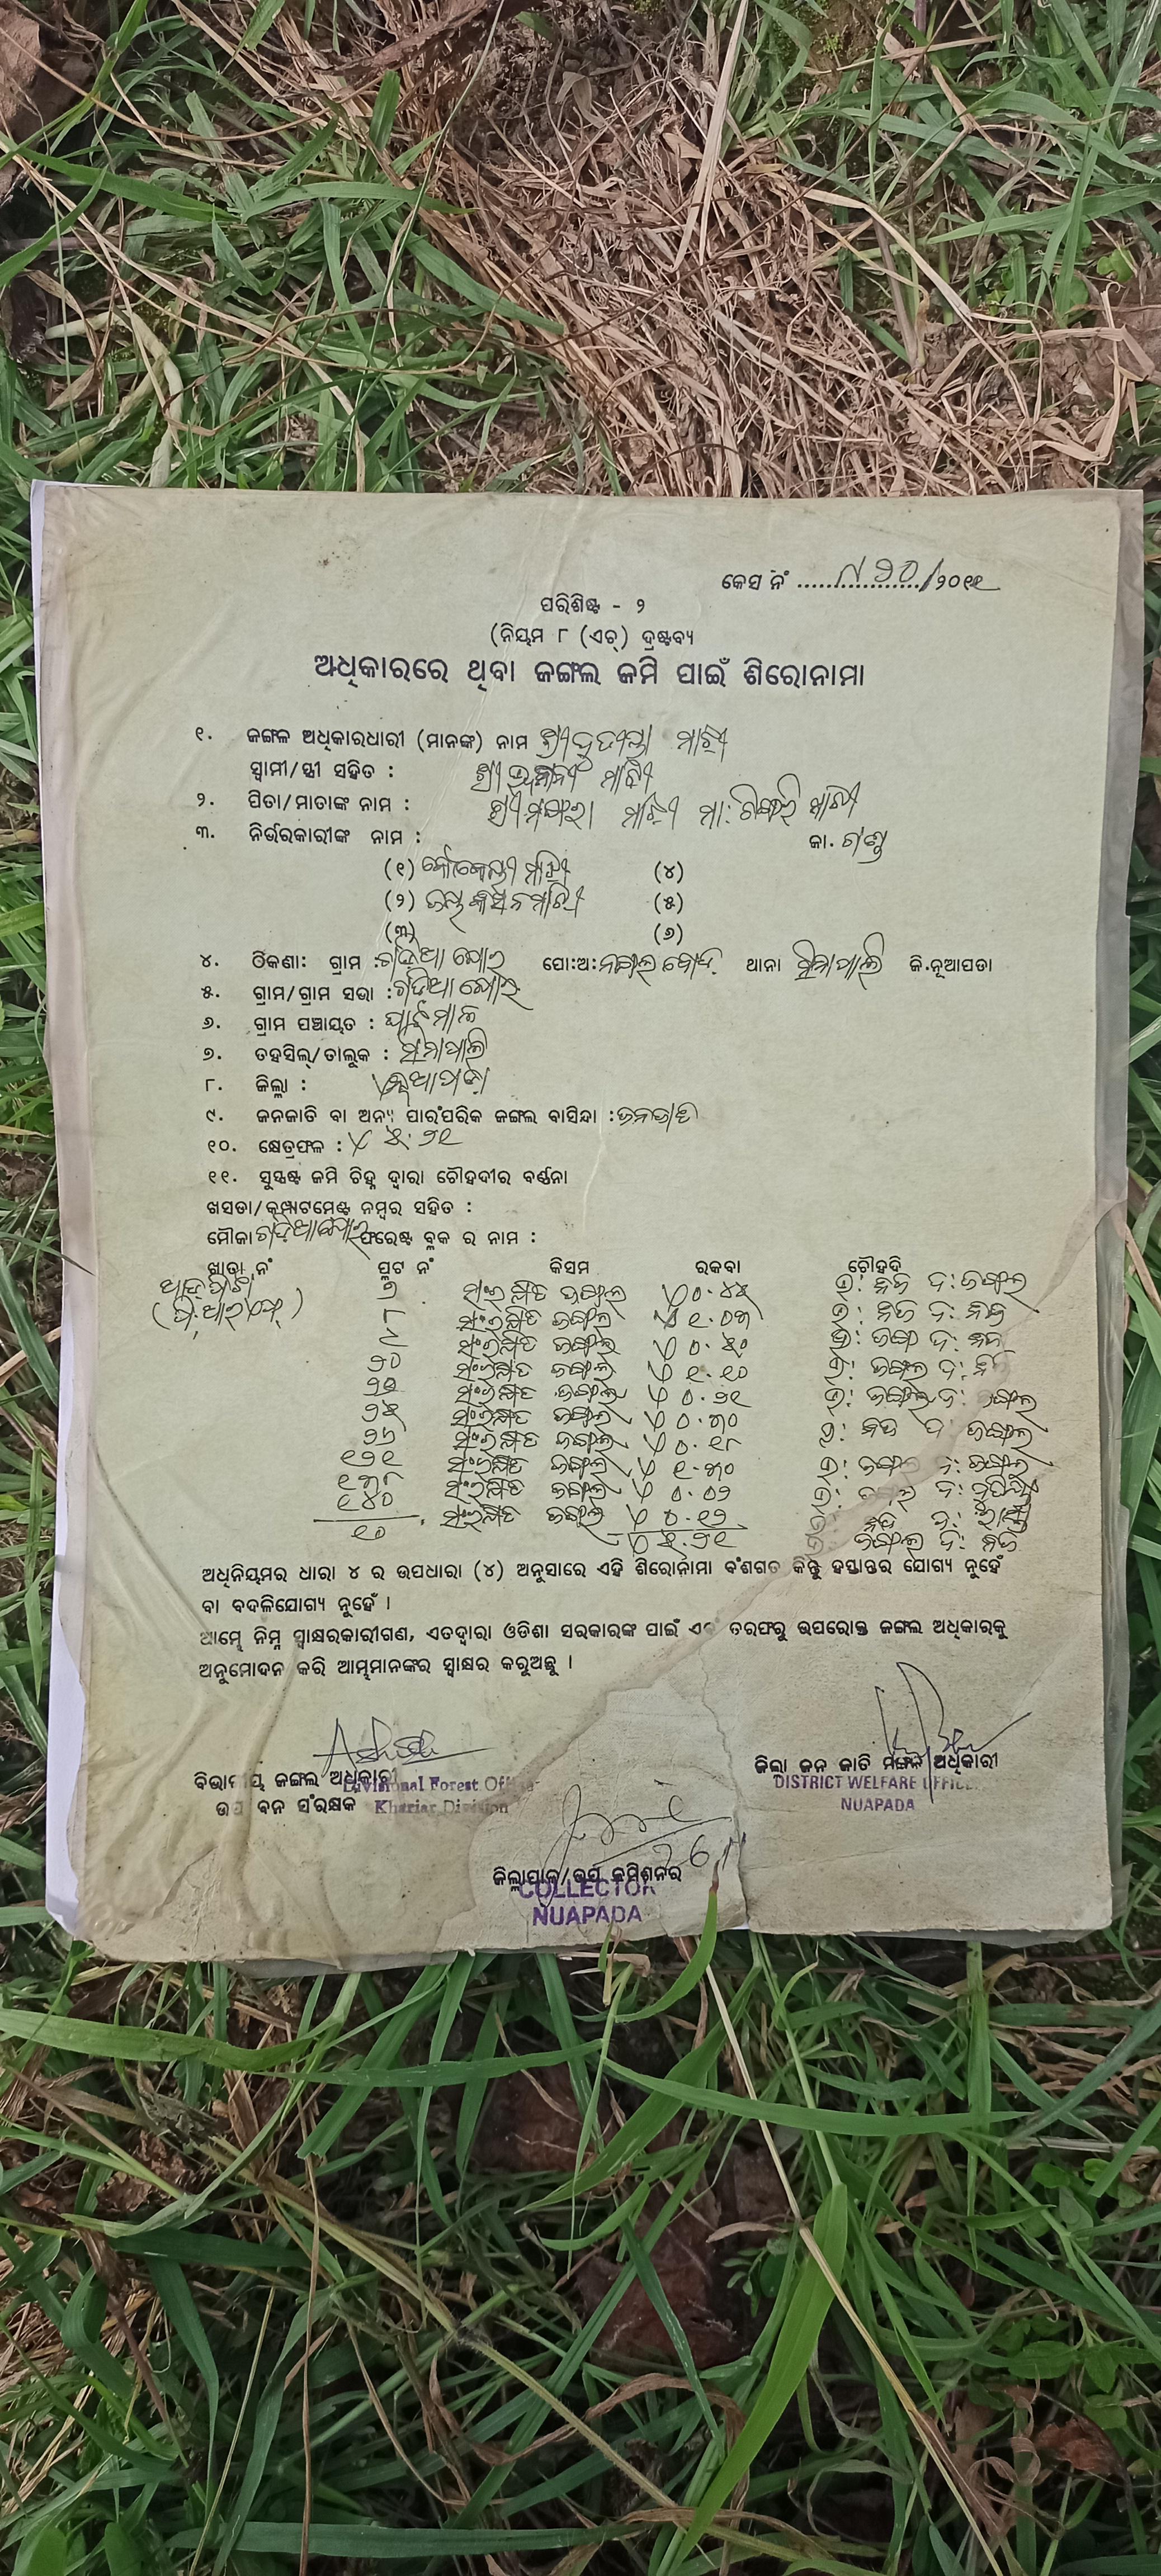 କେସ ନଂ ..................../୨୦୧୧
ପରିଶିଷ୍ଟ - ୨
(ନିୟମ ୮ (ଏଚ୍) ଦ୍ରଷ୍ଟବ୍ୟ
ଅଧିକାରରେ ଥିବା ଜଙ୍ଗଲ ଜମି ପାଇଁ ଶିରୋନାମା
୧. ଜଙ୍ଗଳ ଅଧିକାରଧାରୀ (ମାନଙ୍କ) ନାମ ଶ୍ରୀ ମାଝୀ
ସ୍ୱାମୀ/ସ୍ତ୍ରୀ ସହିତ : ଶ୍ରୀ ମାଝୀ
୨. ପିତା/ମାତାଙ୍କ ନାମ : ଶ୍ରୀ ମାଝୀ ମା:
୩. ନିର୍ଭରକାରୀଙ୍କ ନାମ : ଜା. ଗଣ୍ଡ
(୧) ମାଝୀ (୪)
(୨) (୫)
(୩) (୬)
୪. ଠିକଣା: ଗ୍ରାମ : ପୋ:ଅ: ଥାନା ସିନାପାଲି ଜି.ନୂଆପଡା
୫. ଗ୍ରାମ/ଗ୍ରାମ ସଭା :
୬. ଗ୍ରାମ ପଞ୍ଚାୟତ : ଘାଟମାଳ
୭. ତହସିଲ୍/ତାଲୁକ : ସିନାପାଲି
୮. ଜିଲ୍ଲା : ନୂଆପଡା
୯. ଜନଜାତି ବା ଅନ୍ୟ ପାରଂପରିକ ଜଙ୍ଗଲ ବାସିନ୍ଦା : ଜନଜାତି
୧୦. କ୍ଷେତ୍ରଫଳ : ୫.୨୧
୧୧. ସୁସ୍ପଷ୍ଟ ଜମି ଚିହ୍ନ ଦ୍ୱାରା ଚୌହଦୀର ବର୍ଣ୍ଣନା
ଖସଡା/କମ୍ପାଟମେଣ୍ଟ ନମ୍ବର ସହିତ :
ମୌଜା ଫରେଷ୍ଟ ବ୍ଲକ ର ନାମ :
ଖାତା ନଂ ପ୍ଲଟ ନଂ କିସମ ରକବା ଚୌହଦି
୭ ସଂରକ୍ଷିତ ଜଙ୍ଗଲ ୦.୪୫ ଉ: ନିଜ ଦ: ଜଙ୍ଗଲ
(ପି.ଆର.ଏଫ୍) ୮ ସଂରକ୍ଷିତ ଜଙ୍ଗଲ ୧.୦୩ ଉ: ନିଜ ଦ: ନିଜ
୯ ସଂରକ୍ଷିତ ଜଙ୍ଗଲ ୦.୪୦ ଉ: ଦ: ନିଜ
୨୦ ସଂରକ୍ଷିତ ଜଙ୍ଗଲ ୧.୧୦ ଉ: ଜଙ୍ଗଲ ଦ:
ସଂରକ୍ଷିତ ଜଙ୍ଗଲ ୦.୨୧ ଉ: ଜଙ୍ଗଲ ଦ: ଜଙ୍ଗଲ
୨୫ ସଂରକ୍ଷିତ ଜଙ୍ଗଲ ୦.୩୦ ଉ: ନିଜ ଦ: ଜଙ୍ଗଲ
୨୬ ସଂରକ୍ଷିତ ଜଙ୍ଗଲ ୦.୧୮ ଉ: ଜଙ୍ଗଲ ଦ: ଜଙ୍ଗଲ
୧୨୧ ସଂରକ୍ଷିତ ଜଙ୍ଗଲ ୧.୩୦ ଉ: ଜଙ୍ଗଲ ଦ:
୧୩୮ ସଂରକ୍ଷିତ ଜଙ୍ଗଲ ୦.୦୨ ଉ: ନିଜ ଦ: ରାସ୍ତା
୧୪୦ ସଂରକ୍ଷିତ ଜଙ୍ଗଲ ୦.୧୨ ଉ: ଜଙ୍ଗଲ ଦ: ନିଜ
୧୦ ୫.୨୧
ଅଧିନିୟମର ଧାରା ୪ ର ଉପଧାରା (୪) ଅନୁସାରେ ଏହି ଶିରୋନାମା ବଂଶଗତ କିନ୍ତୁ ହସ୍ତାନ୍ତର ଯୋଗ୍ୟ ନୁହେଁ
ବା ବଦଳିଯୋଗ୍ୟ ନୁହେଁ ।
ଆମ୍ଭେ ନିମ୍ନ ସ୍ୱାକ୍ଷରକାରୀଗଣ, ଏତଦ୍ୱାରା ଓଡିଶା ସରକାରଙ୍କ ପାଇଁ ଏବଂ ତରଫରୁ ଉପରୋକ୍ତ ଜଙ୍ଗଲ ଅଧିକାରକୁ
ଅନୁମୋଦନ କରି ଆମ୍ଭମାନଙ୍କର ସ୍ୱାକ୍ଷର କରୁଅଛୁ ।
ବିଭାଗୀୟ ଜଙ୍ଗଲ ଅଧିକାରୀ Divisional Forest Officer
ଉପ ବନ ସଂରକ୍ଷକ Khariar Division
ଜିଲା ଜନ ଜାତି ମଙ୍ଗଳ ଅଧିକାରୀ
DISTRICT WELFARE OFFICER
NUAPADA
ଜିଲ୍ଲାପାଳ/ଉପ କମିଶନର
COLLECTOR
NUAPADA